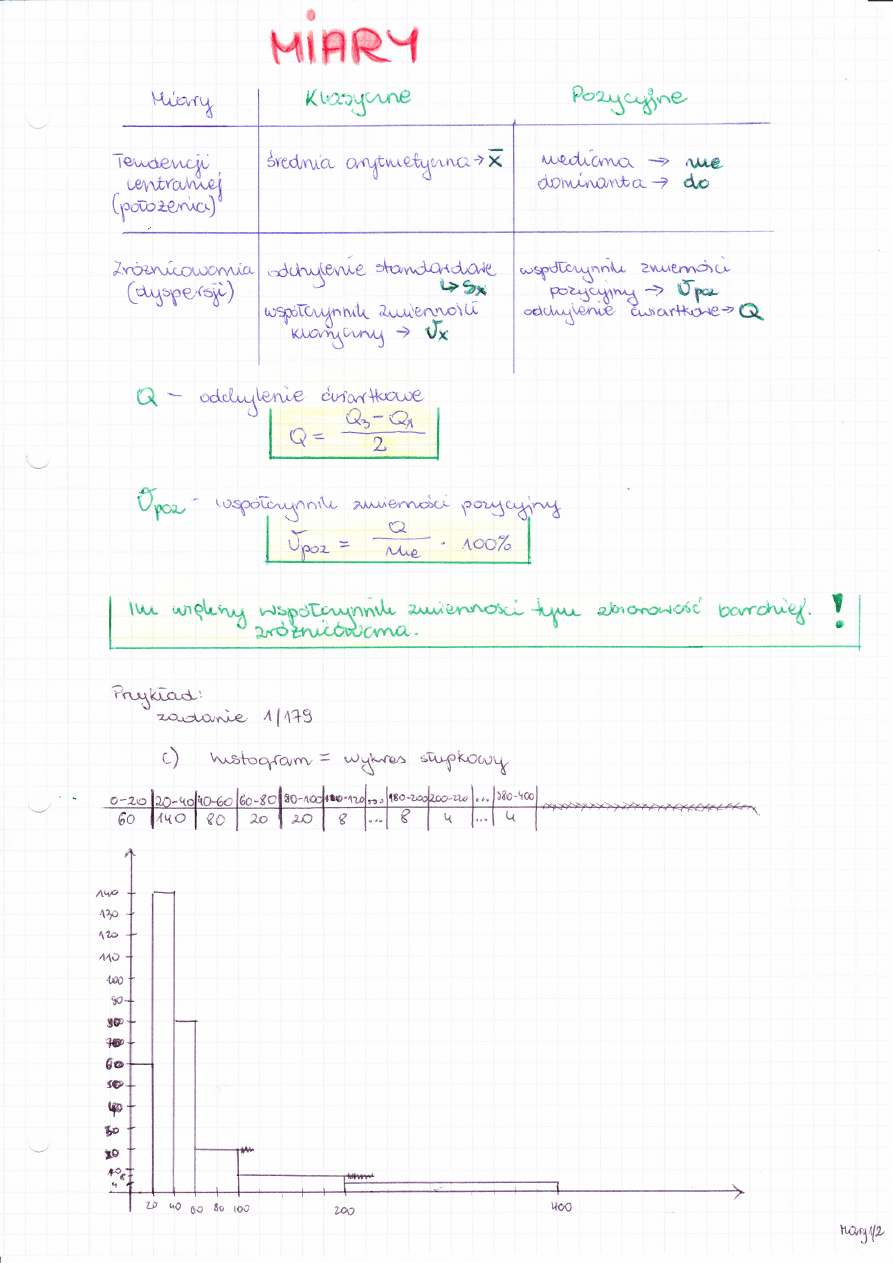 MIARY
Miary Klasyczne Pozycyjne
Tendencji centralnej (położenia) średnia arytmetyczna → x̄ mediana → me
dominanta → do
Zróżnicowania (dyspersji) odchylenie standardowe
↳ Sx
współczynnik zmienności
klasyczny → Vx
współczynnik zmienności
pozycyjny → Vpoz
odchylenie ćwiartkowe → Q
Q – odchylenie ćwiartkowe
Q = (Q3 – Q1) / 2
Vpoz – współczynnik zmienności pozycyjny
Vpoz = Q / me · 100%
Im większy współczynnik zmienności tym zbiorowość bardziej !
zróżnicowana.
Przykład:
zadanie 1/179
c) histogram = wykres słupkowy
0-20 20-40 40-60 60-80 80-100 100-120 ... 180-200 200-220 ... 380-400
60 140 80 20 20 8 ... 8 4 ... 4
140
130
120
110
100
90
80
70
60
50
40
30
20
10
8
4
20 40 60 80 100 200 400
Miary 1/2